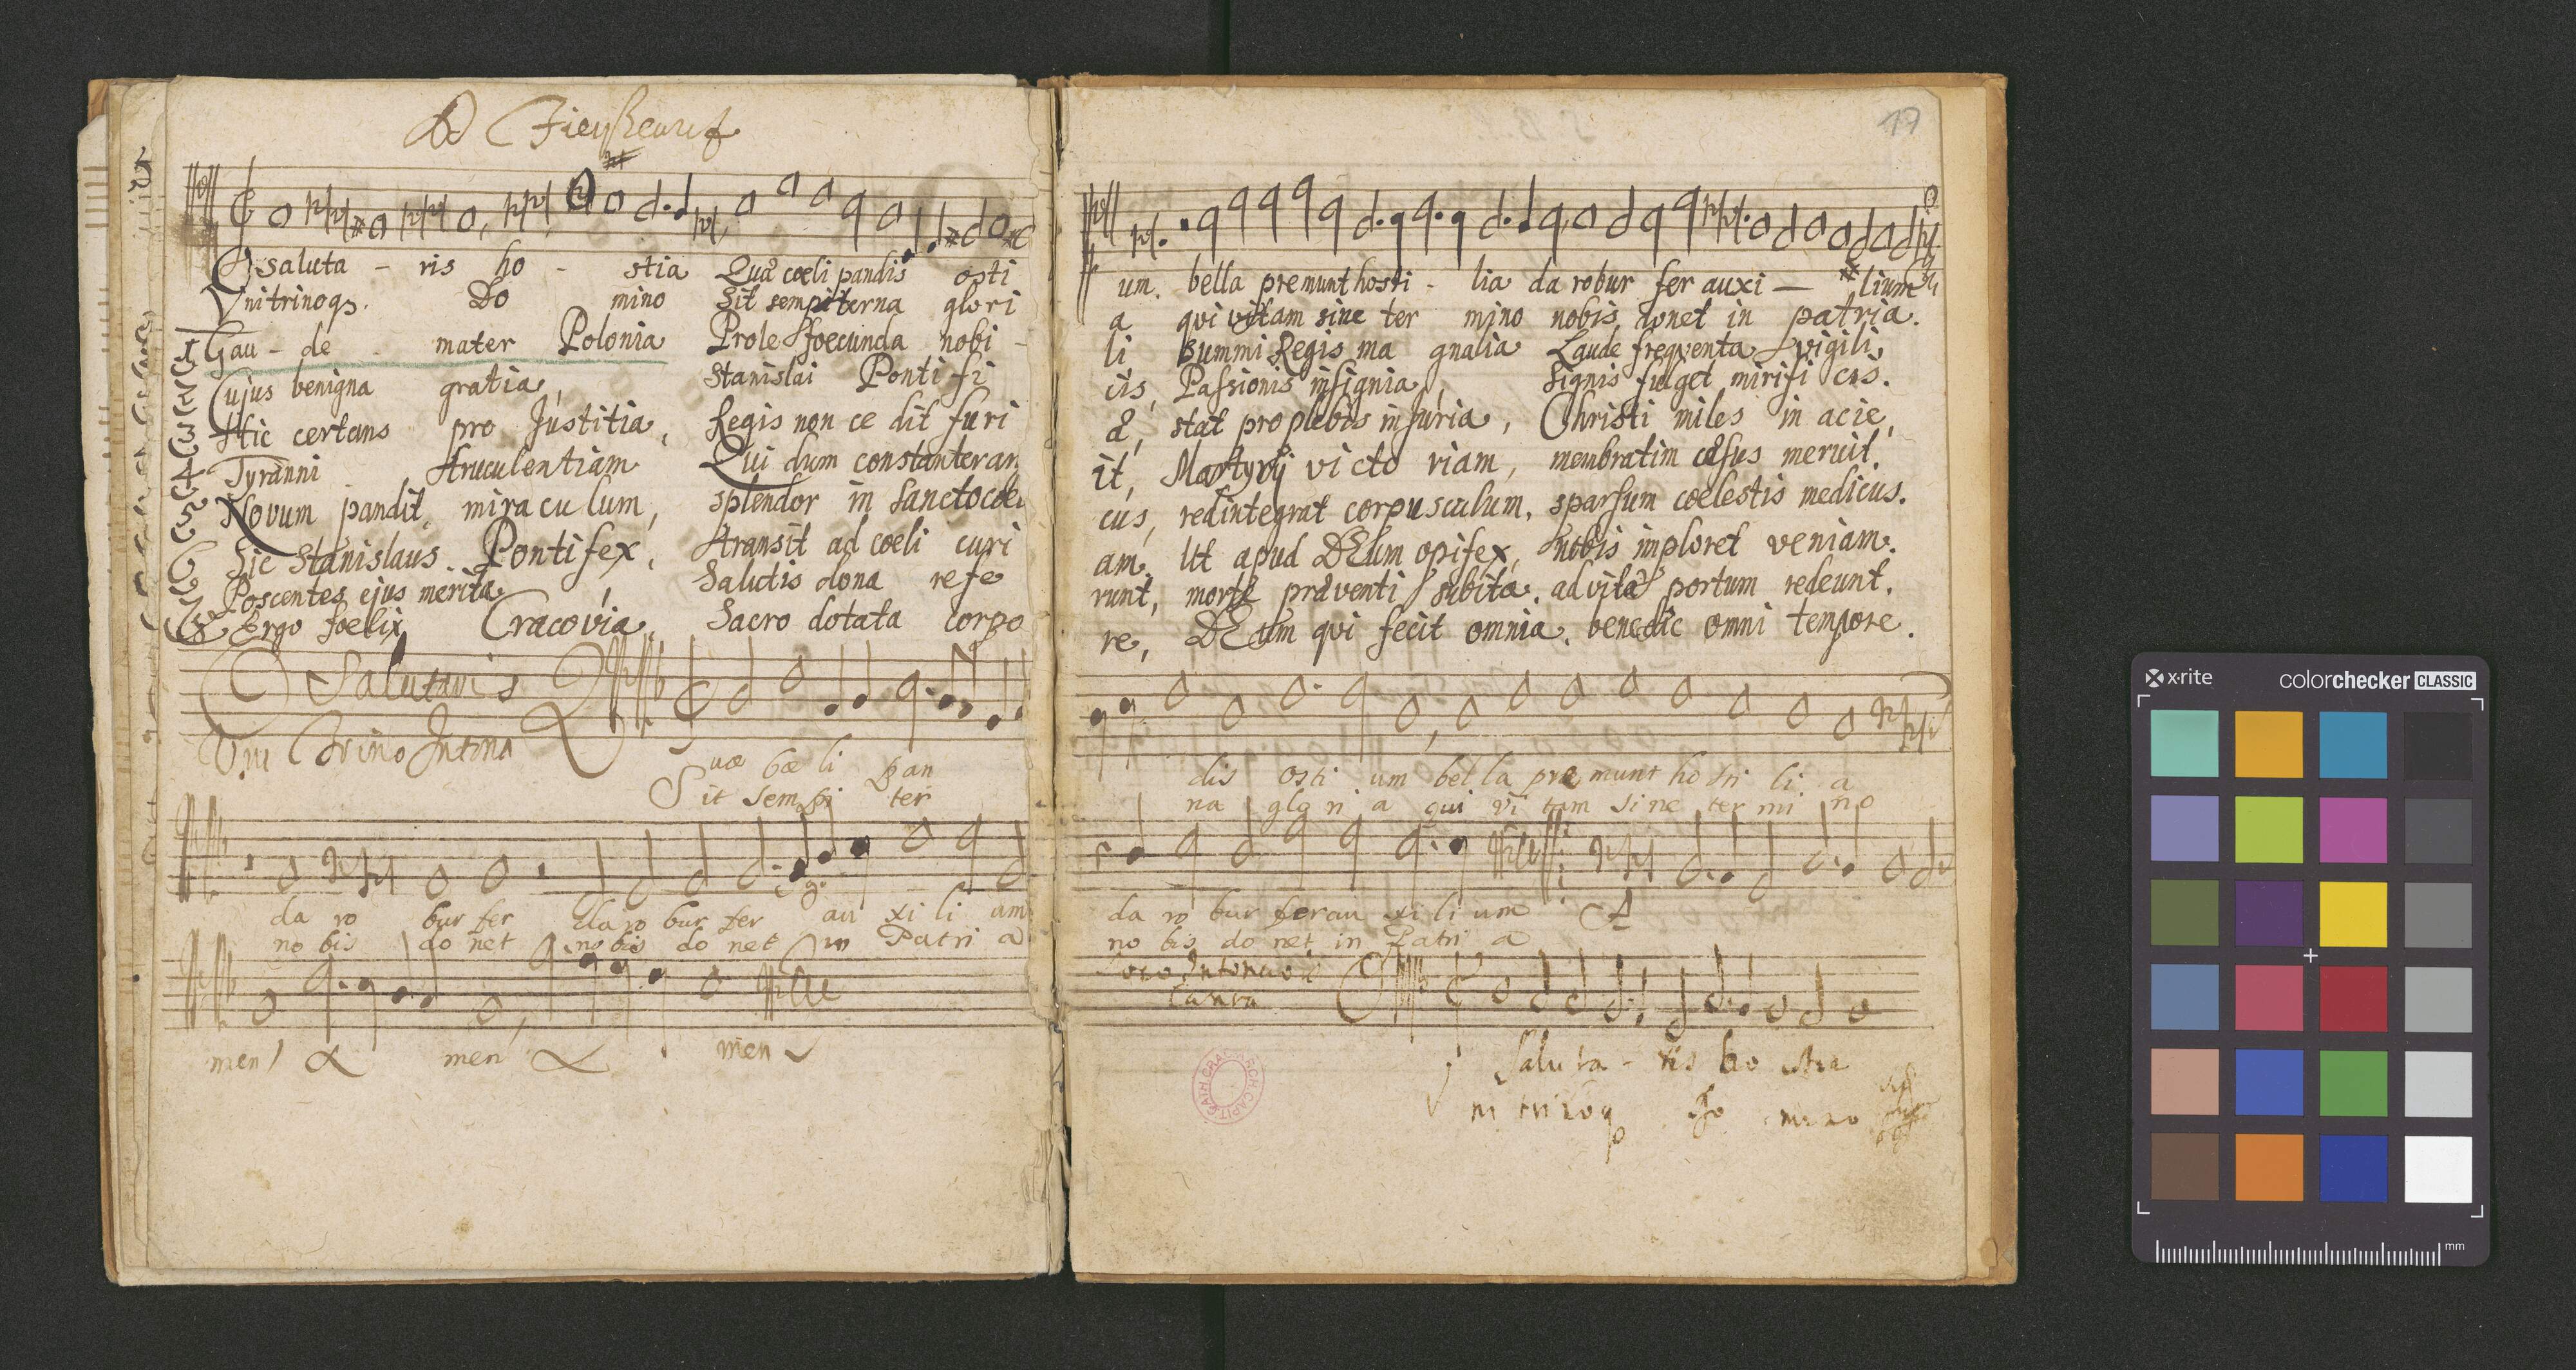 O saluta - ris ho - stia Quæ coeli pandis osti
Unitrinoq3. Do mino Sit sempiterna glori
1 Gau - de mater Polonia Prole foecunda nobi -
2 Cujus benigna gratia, Stanislai Pontifi
3 Hic certans pro Justitia, Regis non ce dit furi
4 Tyranni truculentiam Qui dum constanter ar
5 Novum pandit, miraculum, splendor in sanctocoel
6 Sic Stanislaus Pontifex, transit ad coeli curi
7 Poscentes ejus merita, Salutis dona refe
8 Ergo foelix Cracovia, Sacro dotata corpo
O Salutaris
Uni Trino Intona
Quæ Cæ li Pan
Sit sempi ter
da ro bur fer da ro bur fer au xi li um
no bis do net no bis do net in Patri a
men men men
17
um. bella premunt hosti - lia da robur fer auxi - lium
a qui vitam sine ter mino nobis donet in patria.
li Summi Regis ma gnalia Laude frequenta vigili,
ciis, Passionis insignia, Signis fulget mirificis.
æ, stat pro plebis injuria, Christi miles in acie,
it, Martyrij victo riam, membratim cæsus meruit.
cus, redintegrat corpusculum, sparsum coelestis medicus.
am, Ut apud DEum opifex, nobis imploret veniam.
runt, morte præventi subita, ad vitæ portum redeunt.
re, DEum qui fecit omnia, benedic omni tempore.
dis osti um bel la præ munt ho sti li a
na glo ri a qui vi tam si ne ter mi no
da ro bur fer au xi li um A
no bis do net in Patri a
O
Saluta - ris ho stia
ni trinoq Do mino
x·rite colorchecker CLASSIC
mm